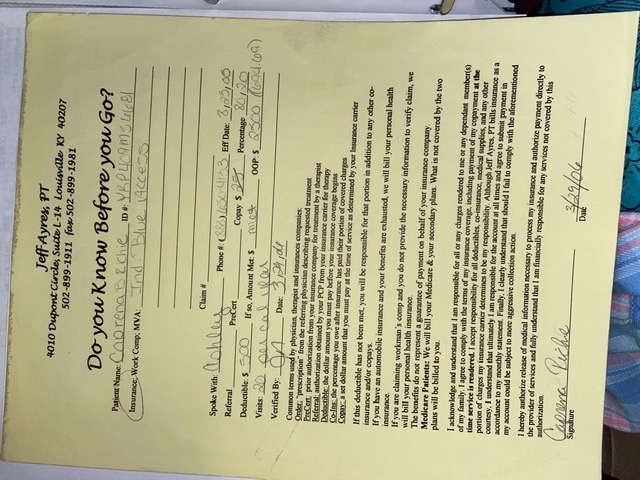 Jeff Ayres, PT
4010 Dupont Circle, Suite L-14 Louisville KY 40207
502-899-1911 fax 502-899-1981
Do you Know Before you Go?
Patient Name: Caprena B Richie ID #:
Insurance; Work Comp; MVA: Ind. Blue Access
Claim #
Spoke With: Ashley Phone #: Eff Date: 8,23,05
Referral PreCert Copay $ 25 Percentage 80,20
Deductible: $ 500 If so, Amount Met: $ met OOP: $ 2500 (694.69)
Visits: 20 per cal year
Verified By: Date: 3,29,06
Common terms used by physician, therapist and insurances companies:
Order: "prescription" from the referring physician describing requested treatment
PreCert: prior authorization from your insurance company for treatment by a therapist
Referral: authorization obtained by your PCP from your insurance carrier for therapy
Deductible: the dollar amount you must pay before your insurance coverage begins
Co-Ins: the percentage you owe after insurance has paid their portion of covered charges
Copay: a set dollar amount that you must pay at the time of service as determined by your Insurance carrier
If this deductible has not been met, you will be responsible for that portion in addition to any other co-
insurance and/or copays.
If you have an automobile insurance and your benefits are exhausted, we will bill your personal health
insurance.
If you are claiming workman's comp and you do not provide the necessary information to verify claim, we
will bill your personal health insurance.
The benefits do not represent a guarantee of payment on behalf of your insurance company.
Medicare Patients: We will bill your Medicare & your secondary plans. What is not covered by the two
plans will be billed to you.
I acknowledge and understand that I am responsible for all or any charges rendered to me or any dependant member(s)
of my family. I agree to comply with the terms of my insurance coverage, including payment of my copayment at the
time service is rendered. I accept responsibility for all deductibles, co-insurance, medical supplies, and any other
portion of charges my insurance carrier determines to be my responsibility. Although Jeff Ayres, PT bills insurance as a
courtesy, I understand that ultimately I am responsible for the account at all times and agree to submit payment in
accordance to my monthly statement. Finally, I clearly understand that should I fail to comply with the aforementioned
my account could be subject to more aggressive collection action.
I hereby authorize release of medical information necessary to process my insurance and authorize payment directly to
the provider of services and fully understand that I am financially responsible for any services not covered by this
authorization.
Caprena Richie 3/29/06
Signature Date